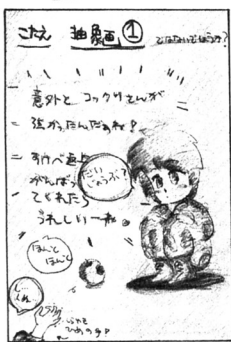 こたえ 抽象画 ①
ではないでしょうか?
意外と コックリさんが
強かったんだぁね!
すけべ
がんばっ
てくれたら
うれしいーね
だい
じょうぶ?
ほんと
ほんと
しくしく